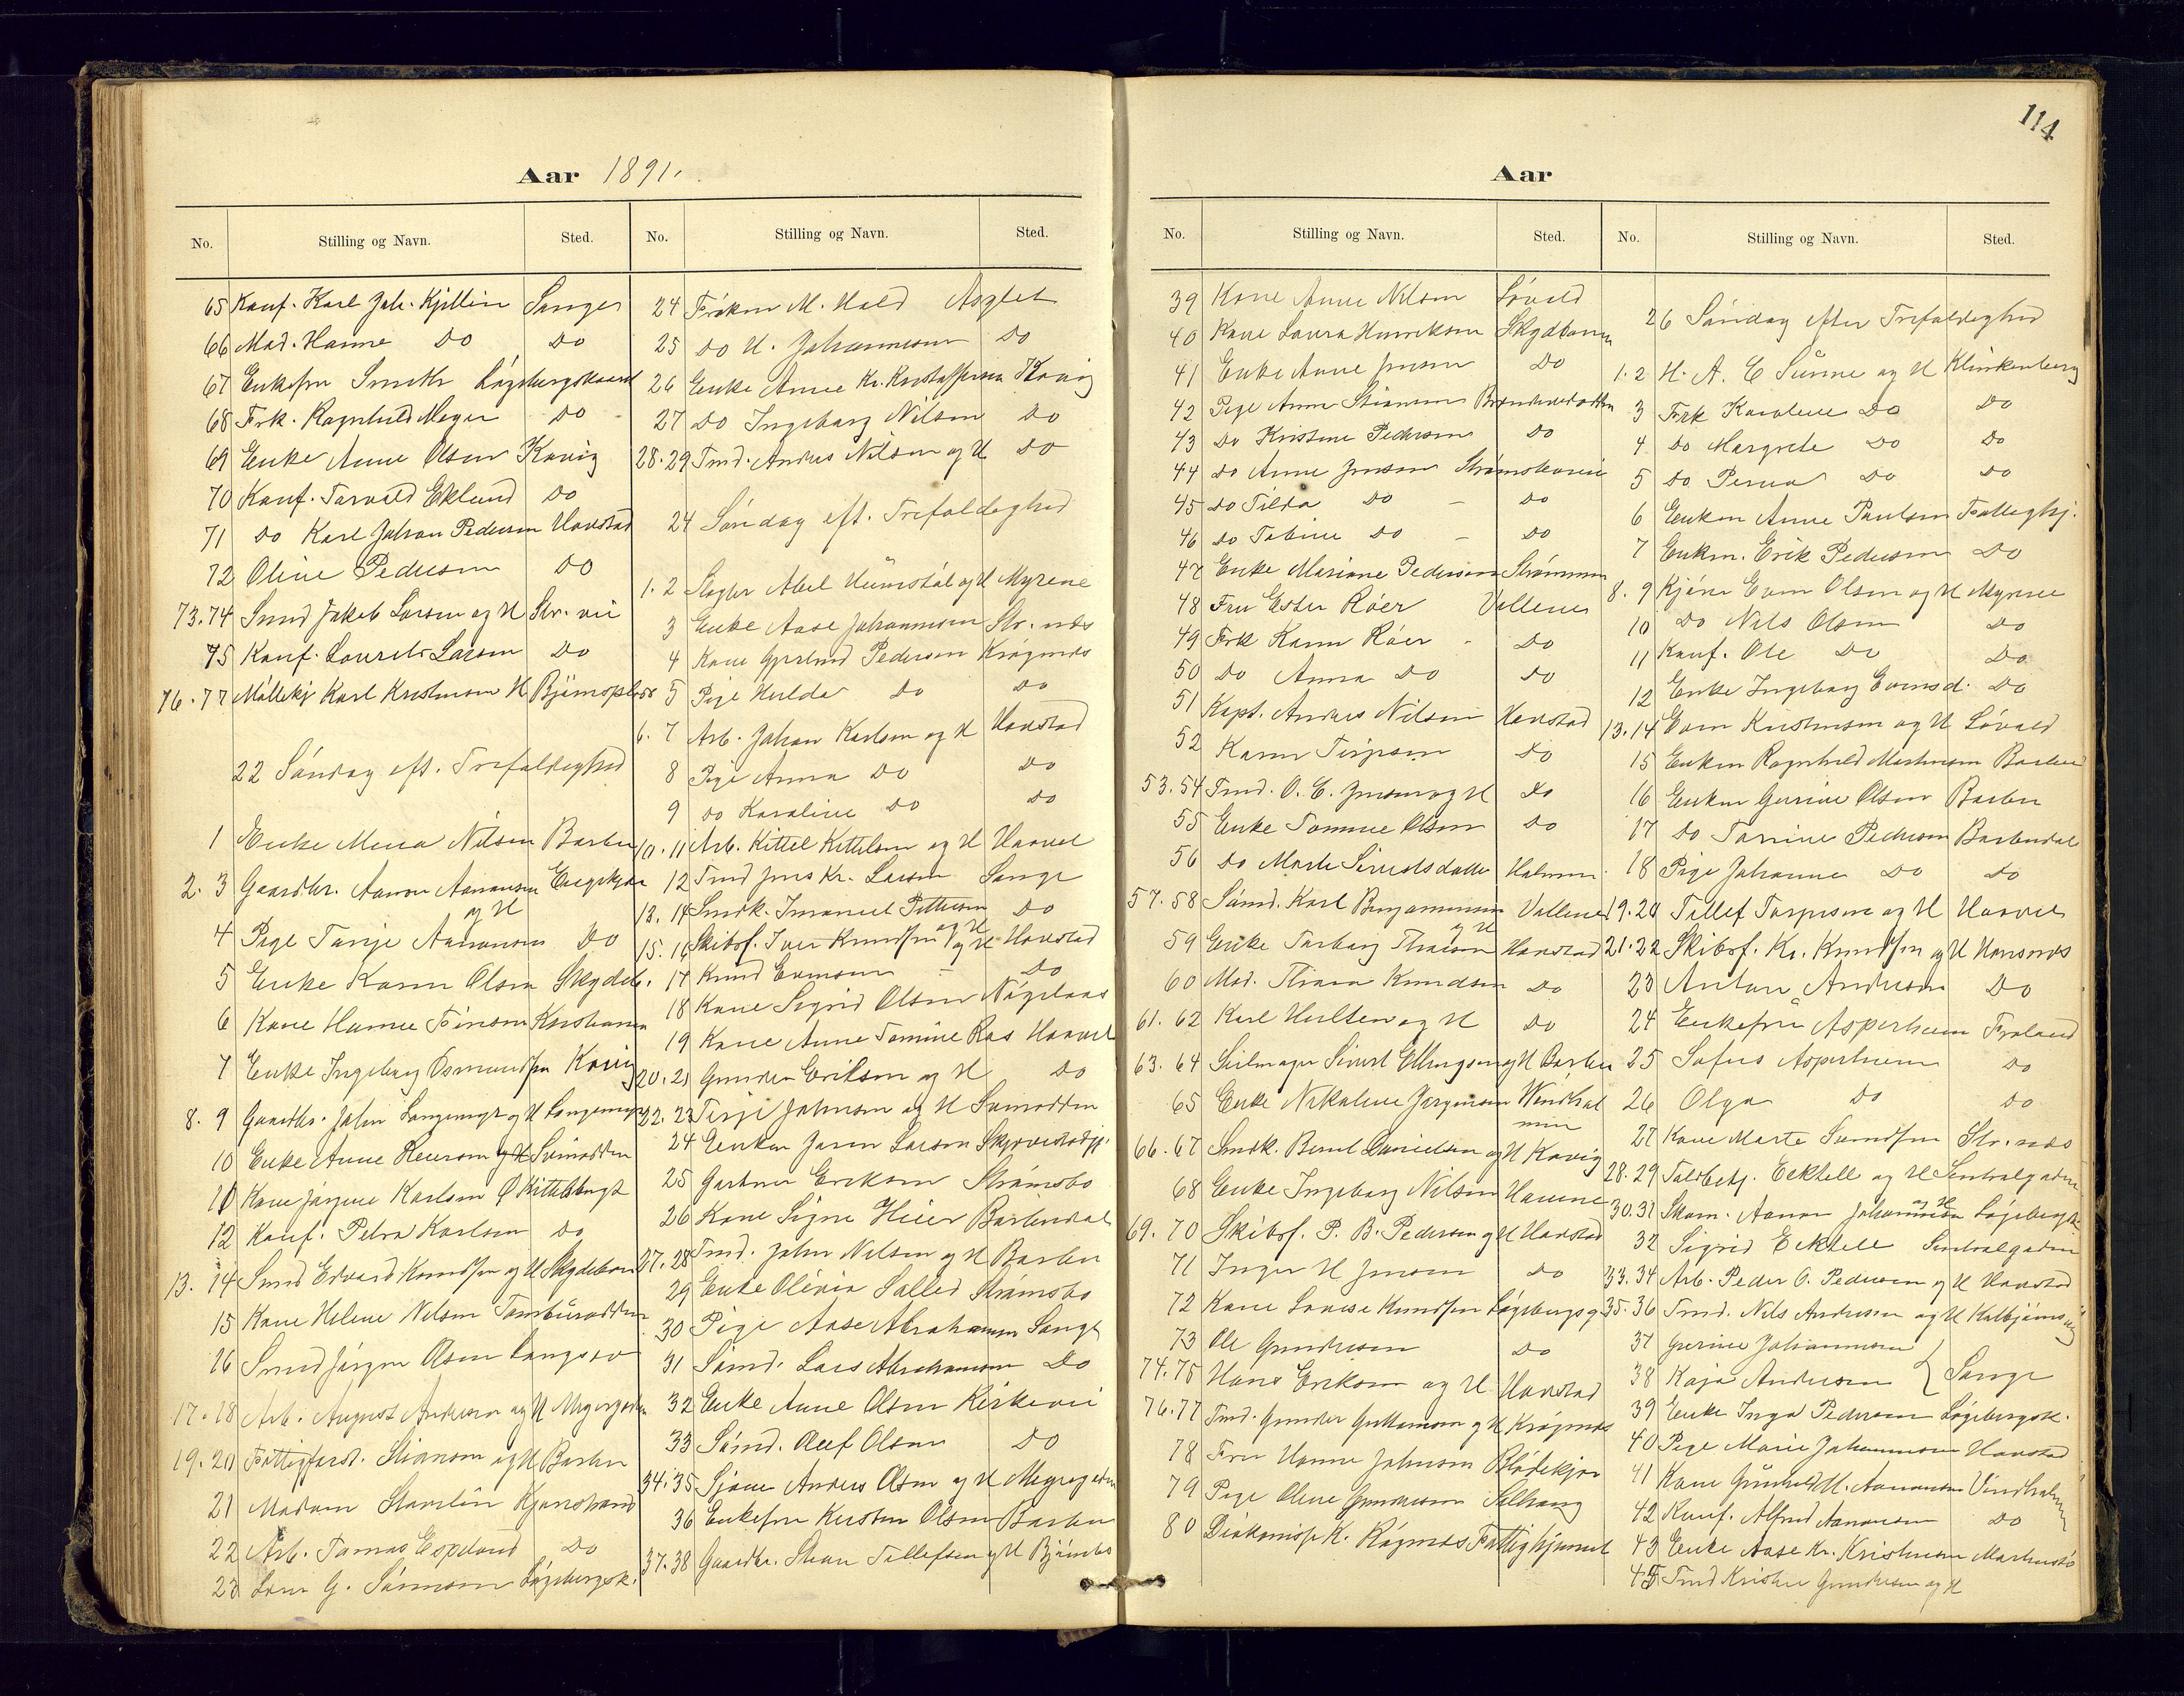 114
Aar 1891.
No. Stilling og Navn. Sted.
65 Konf. Karl Joh. Kjellin Songe
66 Mad. Hanne Do Do
67 Enkefru Smith Løgebergskaard
68 Frk. Ragnhild Meyer Do
69 Enke Anne Olsen Kovig
70 Konf. Torvald Eklund Do
71 Do Karl Johan Pedersen Havstad
72 Oline Pedersen Do
73.74 Smed Jakob Larsen og H Str. vei
75 Konf. Lourits Larsen Do
76.77 Møllekj Karl Kristensen H Bjørnspl
22 Søndag eft. Trefoldighed
1 Enke Mina Nilsen Barbu
2. 3 Gaardbr. Aanon Aanonsen Engekjær
og H
4 Pige Tarje Aanonsen Do
5 Enke Karen Olsen Skydeb.
6 Kone Hanne Tønesen
7 Enke Ingeborg Osmundsen Kovig
8. 9 Gaardbr. John Langemyr og H Langemyr
10 Enke Anne Reiersen Svinodden
11 Kone Jørgine Karlsen Ø Kittelsbugt
12 Konf. Petra Karlsen Do
13. 14 Smed Edvard Knudsen og H Skydebanen
15 Kone Helene Nilsen Tambürodden
16 Smed Jørgen Olsen Langsæv
17.18 Arb. August Andersen og H Myrgaden
19.20 Fattigforst. Stiansen og H Barbu
21 Madam Stavelin Kjenstrand
22 Arb. Tomas Espeland Do
23 Lovr G. Sørensen Løgebergsk.
No. Stilling og Navn. Sted.
24 Frøken M. Hald Asylet
25 Do H. Johannesen Do
26 Enke Anne Kr. Kristoffersen Kovig
27 Do Ingeborg Nilsen Do
28.29 Tmd. Anders Nilsen og H Do
24 Søndag eft. Trefoldighed
1.2 Slagter Abel Heimstøl og H Myrene
3 Enke Aase Johannesen Str. næs
4 Kone Gjerlud Pedersen Krøgenæs
5 Pige Hulda Do Do
6. 7 Arb. Johan Karlsen og H Havstad
8 Pige Anna Do Do
9 Do Karoline Do Do
10.11 Arb. Kittel Kittelsen og H Haavet
12 Tmd Jens Kr. Larsen Songe
13. 14 Smdk. Imanuel Pettersen Do
og H
15. 16 Skibsf. Iver Knudsen og H Havstad
17 Knud Evensen - Do
18 Kone Sigrid Olsen Nøgelaas
19 Kone Anne Tomine Ras Haavet
20.21 Gunder Eriksen og H Do
22.23 Terje Johnsen og H Svinodden
24 Enken Jaren Larsen
25 Gartner Eriksen Strømsbo
26 Kone Signe Heier Barbudal
27.28 Tmd. John Nilsen og H Barbu
29 Enke Olivia Salled Strømsbo
30 Pige Aase Abrahamsen Songe
31 Sømd. Lars Abrahamsen Do
32 Enke Anne Olsen Kirkevei
33 Sømd. Oluf Olsen Do
34.35 Sjøm Anders Olsen og H Myrgaden
36 Enkefru Kirsten Olsen Barbu
37.38 Gaardbr. Stian Tellefsen og H Bjørnebo
Aar
No. Stilling og Navn. Sted.
39 Kone Anne Nilsen Løvold
40 Kone Laura Henriksen Skydbanen
41 Enke Anne Jensen Do
42 Pige Anne Stiansen
43 Do Kristine Pedersen Do
44 Do Anne Jensen Strømsbovei
45 Do Tilda Do - Do
46 Do Tobine Do - Do
47 Enke Mariane Pedersen Strømmen
48 Fru Ester Röer Vallene
49 Frk Karen Röer - Do
50 Do Anna Do Do
51 Kapt. Anders Nilsen Havstad
52 Karen Terjesen Do
53.54 Tmd. O. E. Jensen og H Do
55 Enke Tomine Olsen Do
56 Do Marte Sivertsdatter Holmen
57.58 Sømd. Karl Benjaminsen Vallene
og H
59 Enke Torborg Thorsen Havstad
60 Mad. Thrine Knudsen Do
61. 62 Karl Hulten og H Do
63. 64 Seilmager Sivert Ellingsen og H Barbu
65 Enke Nikoline Jørgensen Windhol
men
66.67 Smdk. Bernt Danielsen og H Kovig
68 Enke Ingeborg Nilsen Havene
69. 70 Skibsf. P. B. Pedersen og H Havstad
71 Inger H Jensen Do
72 Kone Lovise Knudsen Løgebergsg
73 Ole Gundersen Do
74.75 Hans Eriksen og H Havstad
76.77 Tmd. Gunder Guttormsen og H Krøgenæs
78 Fru Hanne Johnsen Blødekjær
79 Pige Oline Gundersen Solhaug
80 Diakonisse K. Rögenæs Fattighjemmet
No. Stilling og Navn. Sted.
26 Søndag efter Trefoldighed
1.2 H. A. C Sünne og H Klinkenberg
3 Frk Karoline Do Do
4 Do Margrete Do Do
5 Do Perna Do Do
6 Enken Anne Paulsen Fattighj.
7 Enkm. Erik Pedersen Do
8. 9 Kjøre Even Olsen og H Myrene
10 Do Nils Olsen Do
11 Konf. Ole Do Do
12 Enke Ingeborg Evensd. Do
13.14 Even Kristensen og H Løvold
15 Enken Ragnhild Martinsen Barbu
16 Enken Gurine Olsen Barbu
17 Do Tonine Pedersen Barbudal
18 Pige Johanne Do Do
19.20 Tellef Torjesen og H Haavet
21.22 Skibsf. Kr. Knudsen og H Havsnæs
23 Anton Andersen Do
24 Enkefru Asperheim Froland
25 Sofus Asperheim Do
26 Olga Do Do
27 Kone Marte Svendsen Str. næs
28.29 Toldbetj. Ecktell og H Sentralgaden
30.31 Skom. Aanon Johannesen og H Løgebergsk
32 Sigrid Ecktell Sentralgaden
33.34 Arb. Peder O. Pedersen og H Havstad
35.36 Tmd. Nils Andersen og H Kolbjørnsvig
37 Gurine Johannesen
38 Kaja Andersen } Songe
39 Enke Inga Pedersen Løgebergsk.
40 Pige Marie Johannesen Havstad
41 Kone Gunhild M. Aanonsen Vindholmen
42 Konf. Alfred Aanonsen Do
43 Enke Aase Kr. Kristensen
45 Tmd Kristen Gundersen og H